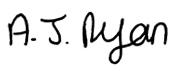 A. J. Ryan